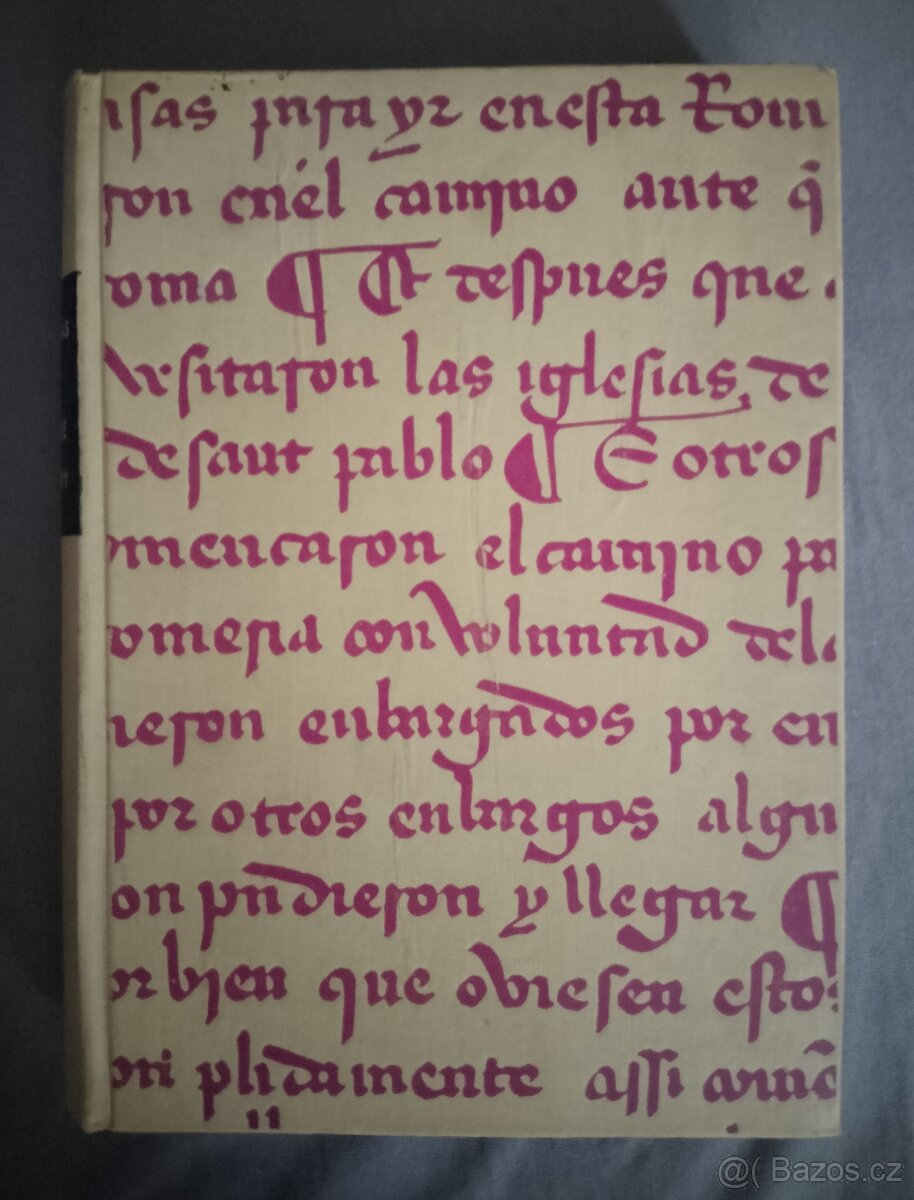 isas para yr en esta Rom
ron en el camino ante q̃
oma ¶ Et despues que
visitaron las iglesias, de
de sant pablo ¶ E otros
omencaron el camino pa
omeria con voluntad dela
ieron enbargados por en
por otros enbargos algu
on pudieron y llegar ¶
or bien que oviesen esto
on plidamente assi
@( Bazos.cz